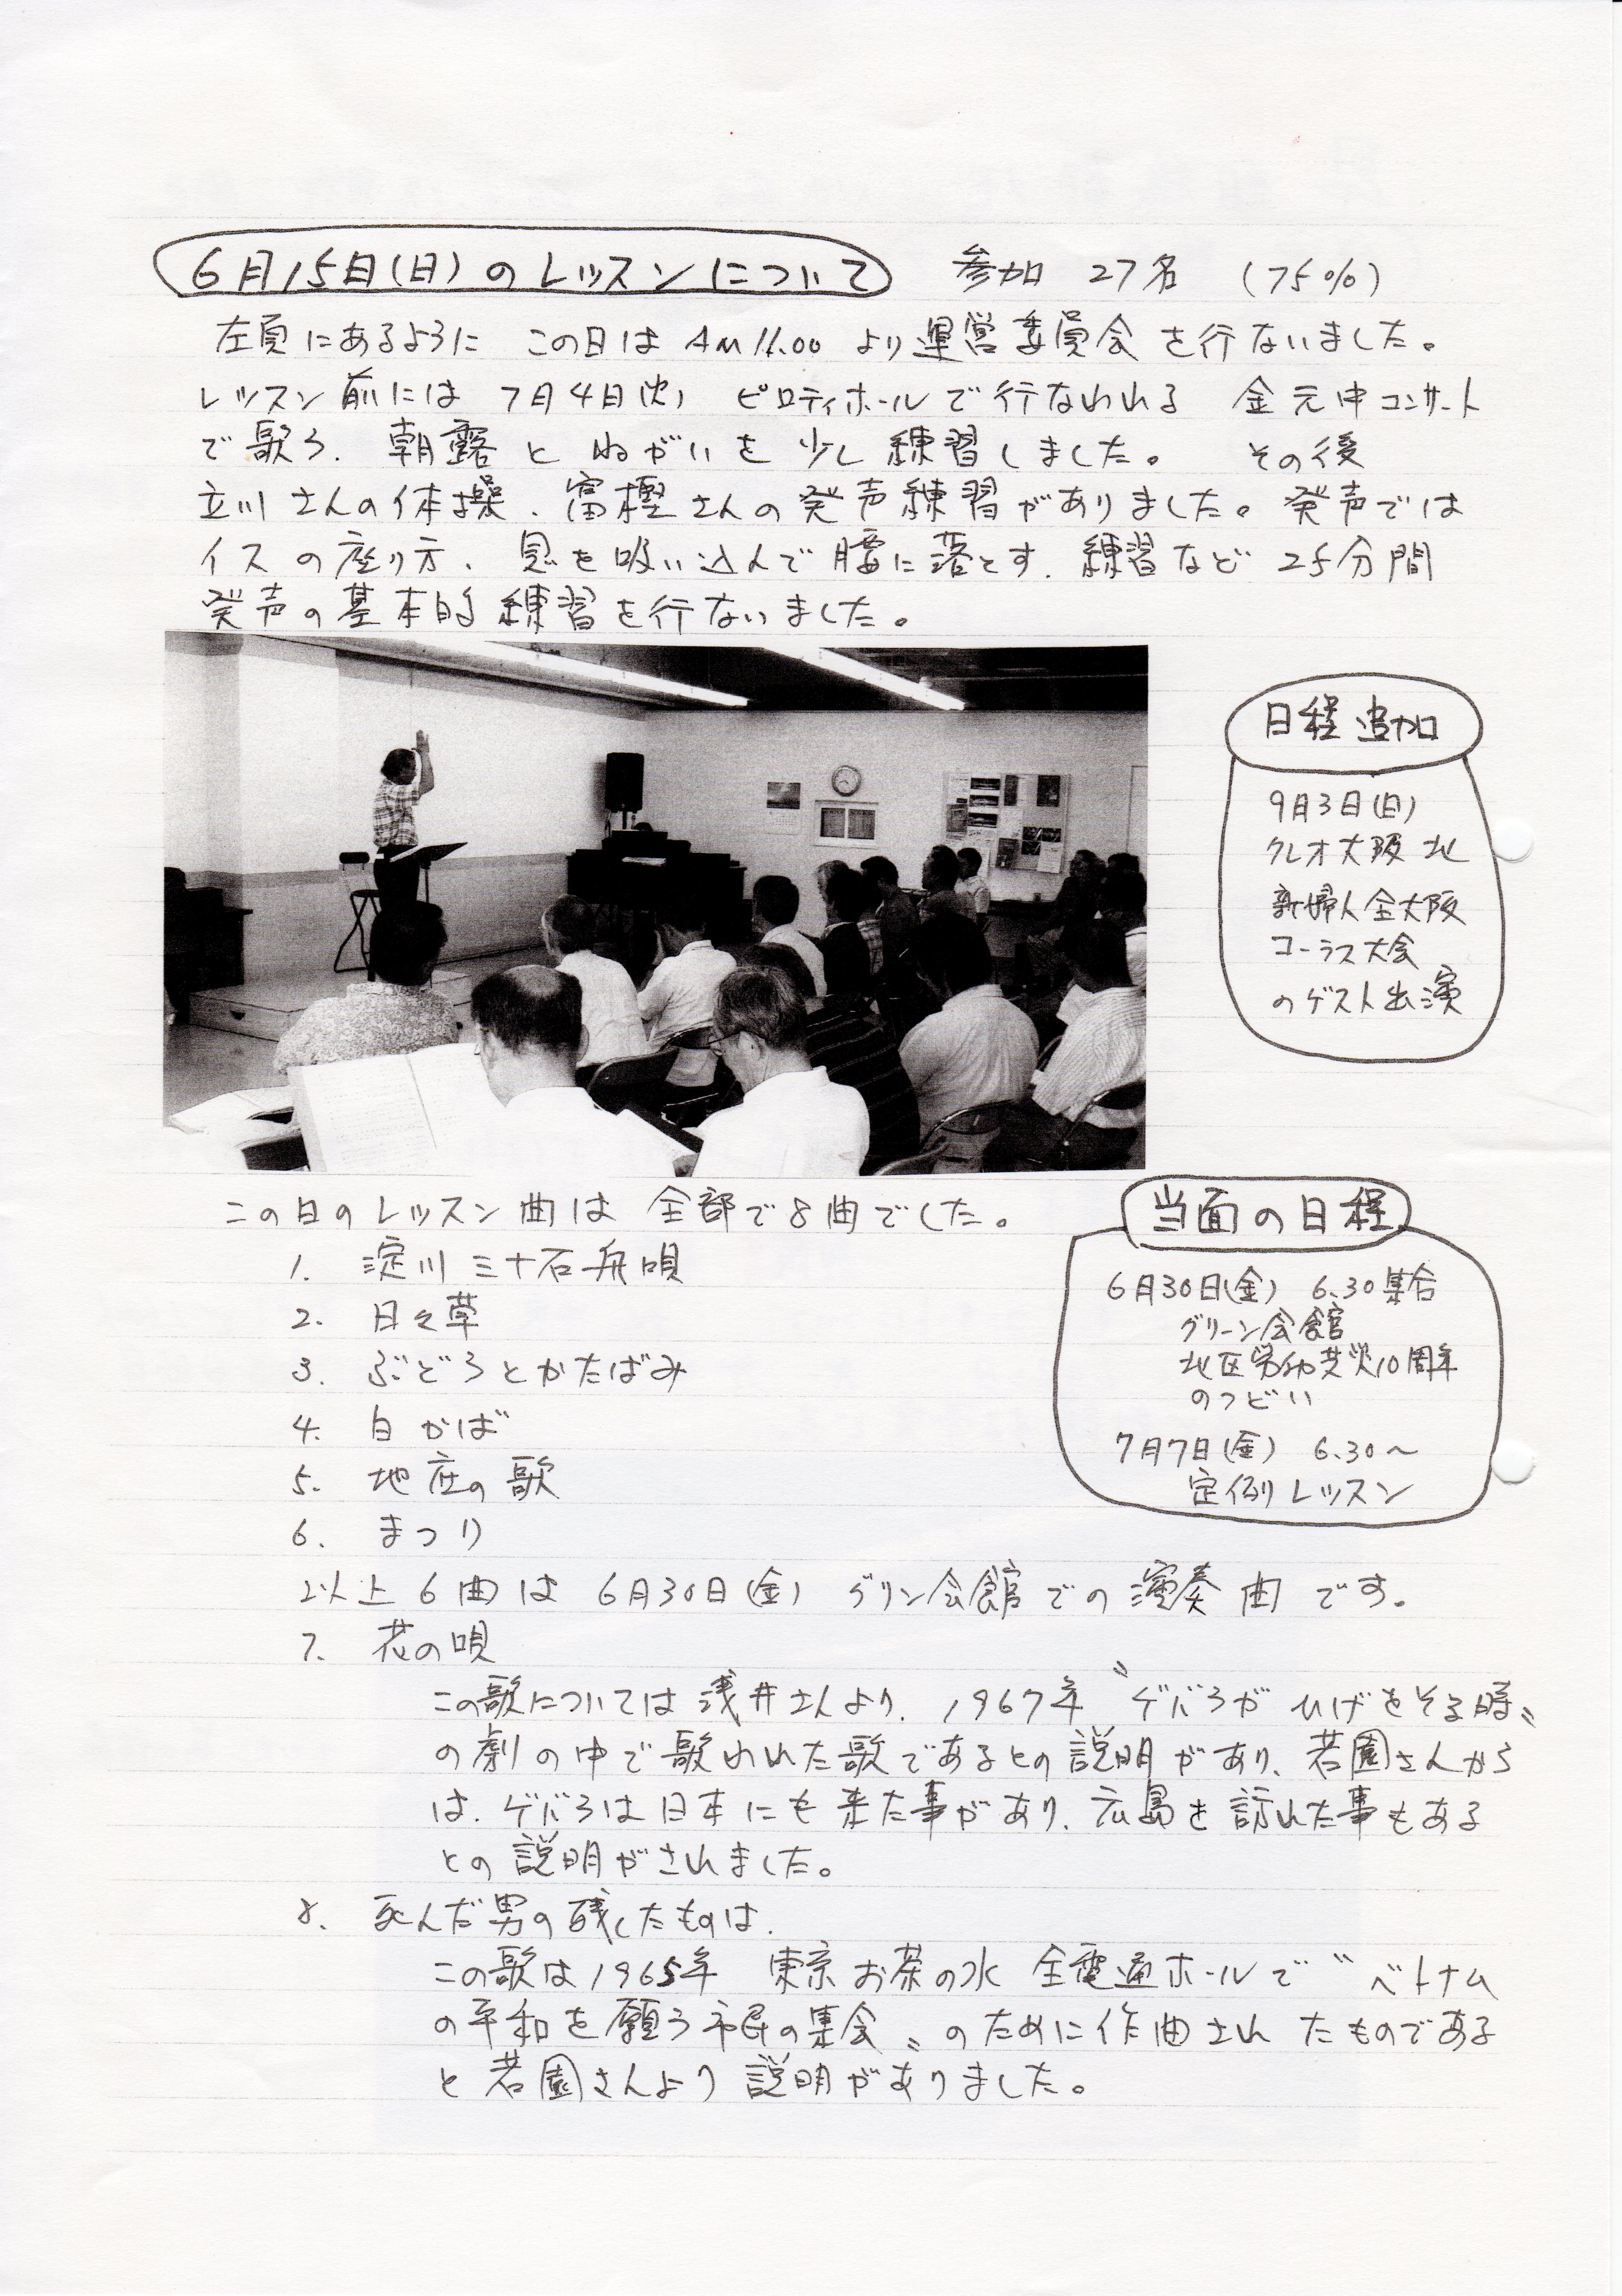 6月15日(日)のレッスンについて 参加 27名 (75%)
左頁にあるように この日は AM11.00 より運営委員会を行ないました。
レッスン前には 7月4日(火) ピロティホールで行なわれる 金元中コンサート
で歌う、朝露とねがいを少し練習しました。 その後
立川さんの体操、富樫さんの発声練習がありました。発声では
イスの座り方、息を吸い込んで腰に落とす、練習など 25分間
発声の基本的練習を行ないました。
日程追加
9月3日(日)
クレオ大阪北
新婦人全大阪
コーラス大会
のゲスト出演
この日のレッスン曲は 全部で8曲でした。
1. 淀川三十石舟唄
2. 日々草
3. ぶどうとかたばみ
4. 白かば
5. 地底の歌
6. まつり
当面の日程
6月30日(金) 6.30集合
グリーン会館
北区労働共済10周年
のつどい
7月7日(金) 6.30〜
定例レッスン
以上6曲は 6月30日(金) グリン会館での演奏曲です。
7. 花の唄
この歌については浅井さんより、1967年〝ゲバラがひげをそる時〟
の劇の中で歌われた歌であるとの説明があり、若園さんから
は、ゲバラは日本にも来た事があり、広島を訪れた事もある
との説明がされました。
8. 死んだ男の残したものは、
この歌は1965年 東京お茶の水 全電通ホールで〝ベトナム
の平和を願う市民の集会〟のために作曲されたものである
と若園さんより説明がありました。